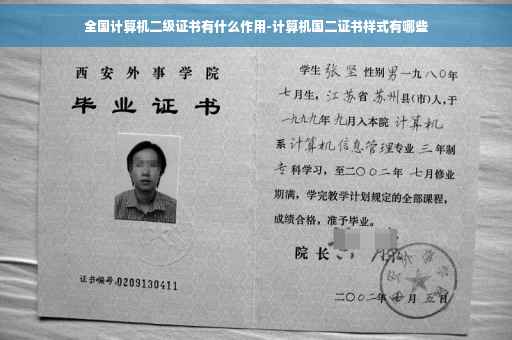 全国计算机二级证书有什么作用-计算机国二证书样式有哪些
西安外事学院
毕业证书
证书编号:0209130411
学生 张坚 性别男一九八〇年
七月生,江苏省苏州县(市)人,于
一九九九年九月入本院 计算机
系 计算机信息管理专业 三年制
专科学习,至二〇〇二年 七月修业
期满,学完教学计划规定的全部课程,
成绩合格,准予毕业。
院长
二〇〇二年 月五日